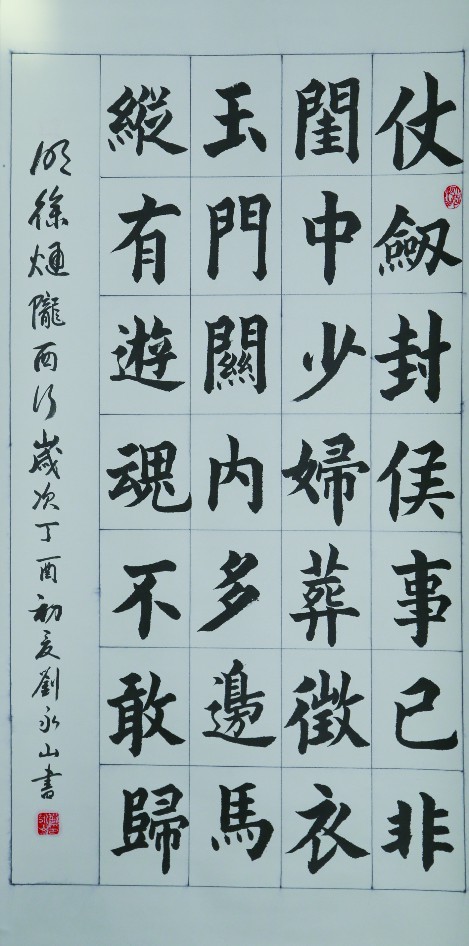 仗劒封侯事已非
閨中少婦葬徵衣
玉門關内多邊馬
縱有遊魂不敢歸
明徐熥隴西行歲次丁酉初夏劉永山書